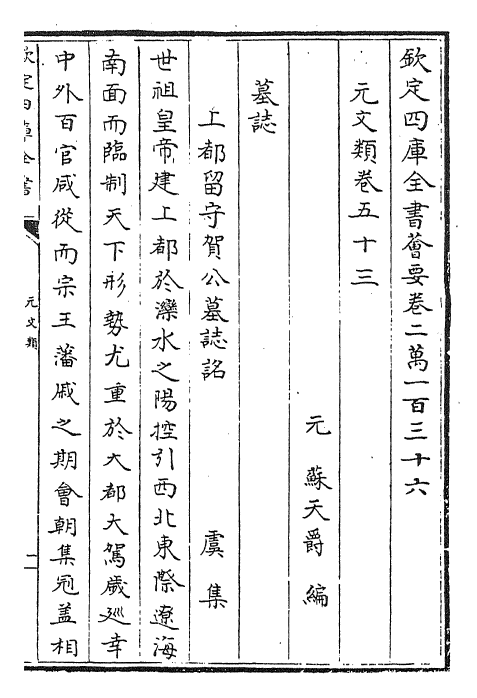 欽定四庫全書薈要卷二萬一百三十六
元文類卷五十三
元　蘇天爵　編
墓誌
上都留守賀公墓誌銘　虞集
世祖皇帝建上都於灤水之陽控引西北東際遼海
南面而臨制天下形勢尤重於大都大駕歲廵幸
中外百官咸從而宗王藩戚之期會朝集冠蓋相
欽定四庫全書
元文類
一